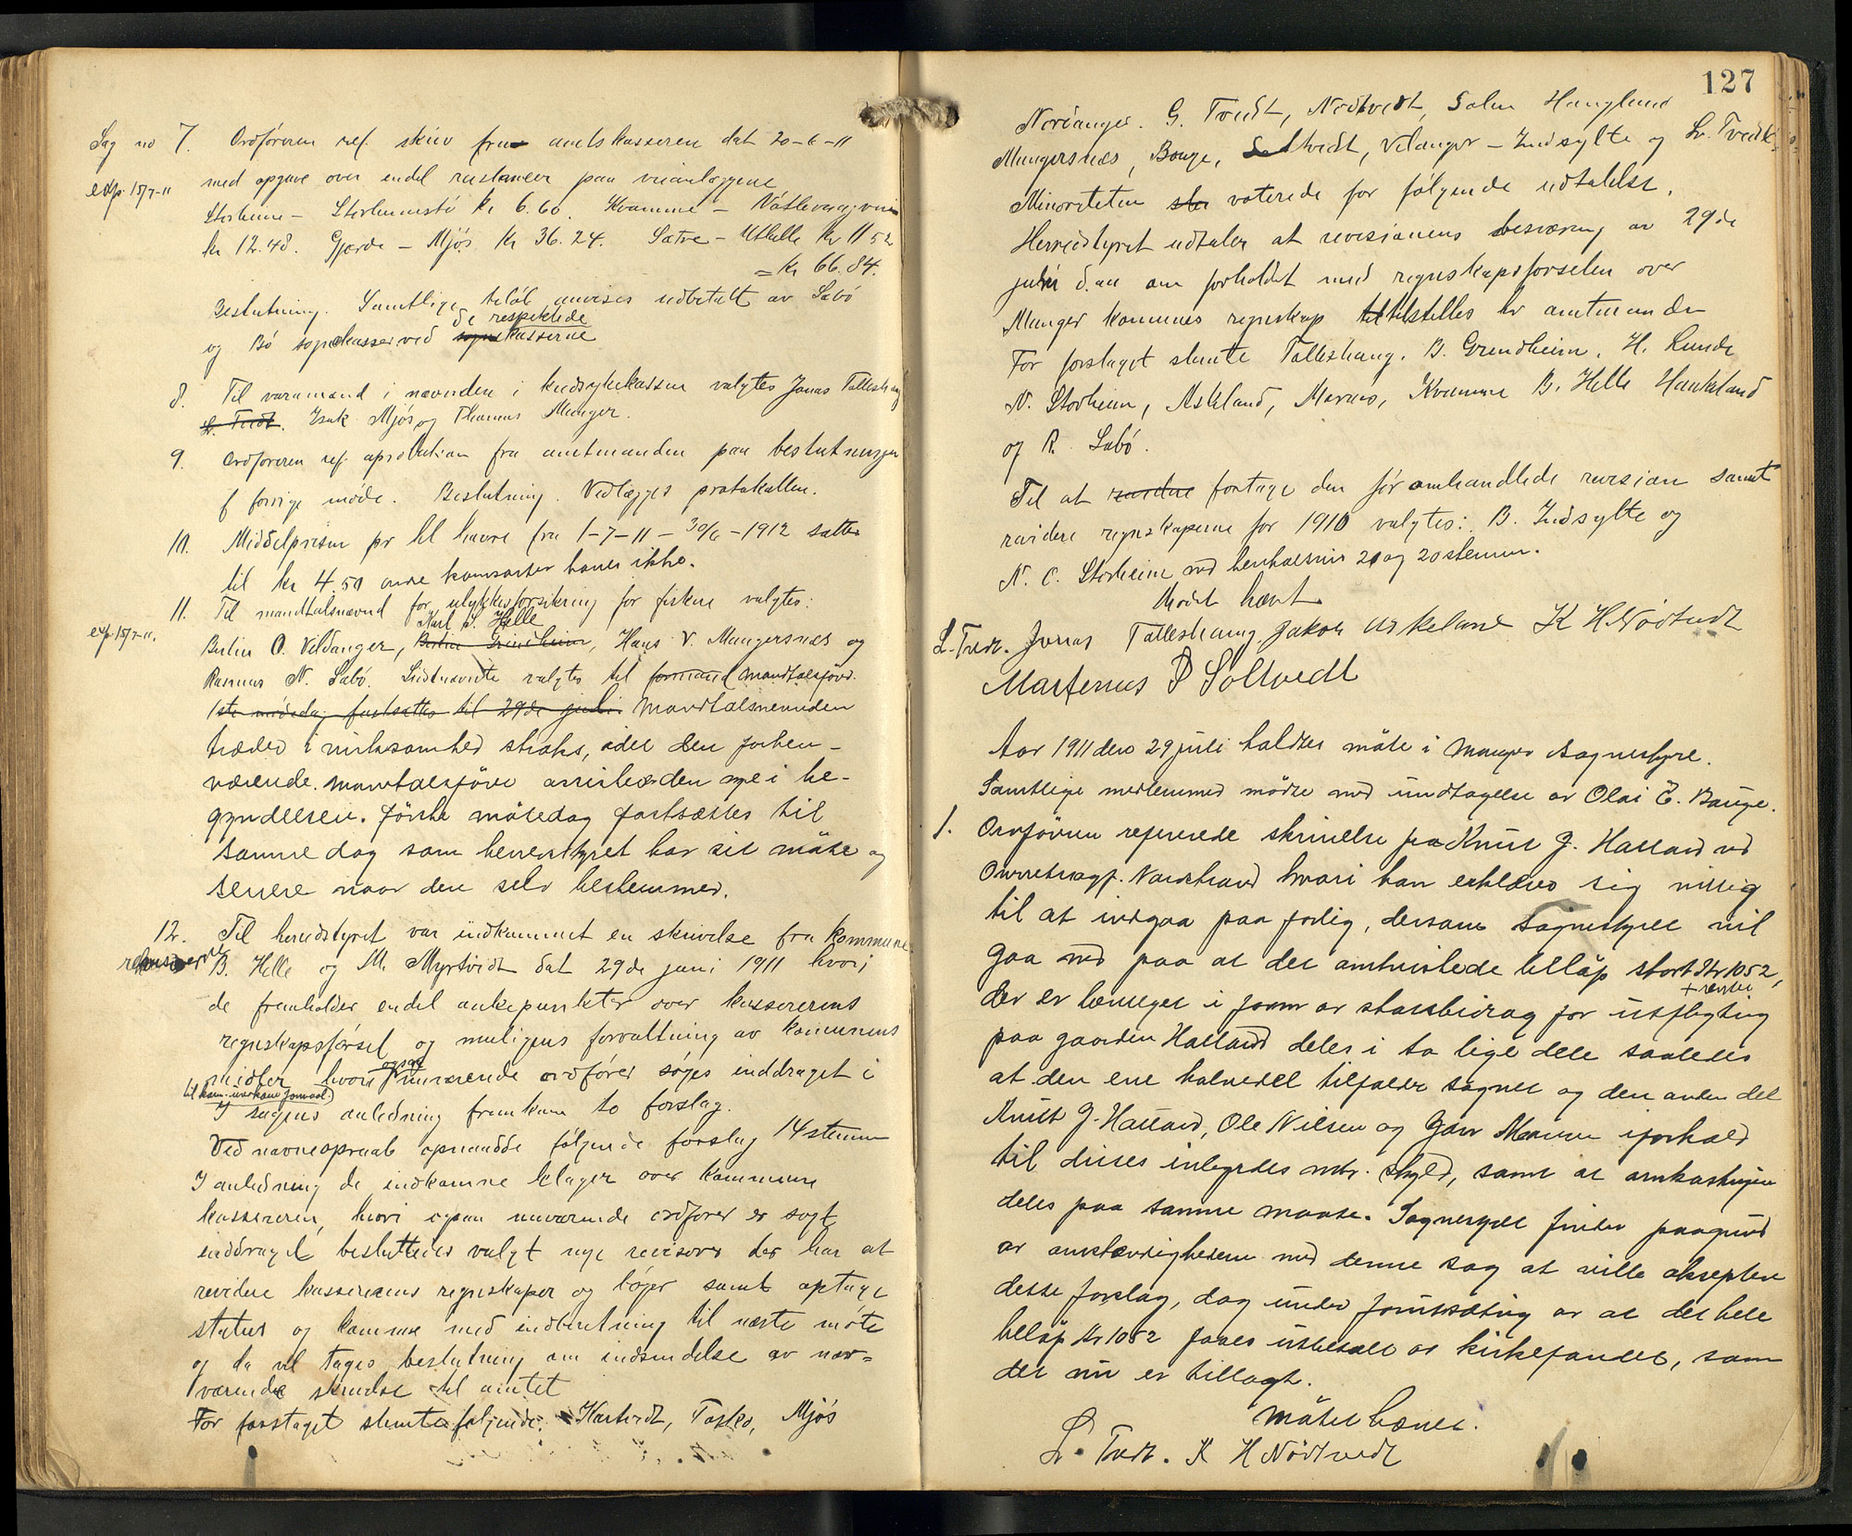 Sag no 7. Ordføreren ref. skriv fra amtskasseren dat 20-6-11
exp. 15/7-11
med opgave over endel restancer paa veianlæggene
Storheim - Storheimstø kr 6.60. Kvamme -
kr 12.48. Gjerde - Mjøs kr 36.24. Sætre - Uthelle kr 11 52
= Kr 66.84.
Beslutning. Samtlige beløb anvises udbetalt av Sæbø
og Bø sognekasser ved de respektede sognekasserne
8. Til varamand i nævnden i kredsykekassen valgtes Jonas Tolleshaug
L. Tvedt. Isak Mjøs og Thomas Manger.
9. Ordføreren ref. aprobation fra amtmanden paa beslutninger
f forrige møde. Beslutning. Vedlægges protokollen.
10. Middelprisen pr hl havre fra 1-7-11 - 30/6-1912 sattes
til kr 4.50 andre kornsorter haves ikke.
11. Til mandtalsnævnd for ulykkesforsikring for fiskere valgtes:
exp. 15/7-11.
Karl S. Helle
Berlin O. Vildanger, Berlin Grindheim, Hans V. Mangersnæs og
Rasmus N. Sæbø. Sidstnævnte valgtes til formand mandtalsförer.
1ste mødedag fastsattes til 29de juli. Mandtalsnevnden
træder i virksomhed straks, idet den forhen-
værende mandtalsförer arrisbeider mye i be-
gyndelsen. förste mötedag fastsættes til
samme dag som herredstyret har sit möte og
senere naar den selv bestemmer.
12. Til herredstyret var indkommet en skrivelse fra kommune
revisorerne B. Helle og M. Myrtvedt dat 29de juni 1911 hvori
de fremholder endel ankepunkter over kassererens
regnskapsførsel og muligens forvaltning av kommunens
midler hvori ogsaa nuværende ordfører søges inddraget i
til kom. uvedkom. formaal.
I sagens anledning fremkom to forslag.
Ved navneopraab opnaadde følgende forslag 14 stemmer
I anledning de indkomne klager over kommune
kassereren, hvori ogsaa nuværende ordfører er søgt
inddraget besluttedes valgt nye revisorer der har at
revidere kassererens regnskaper og bøger samt optage
status og komme med indberetning til næste møte
og da vil tages beslutning om indsendelse av nær-
værende skrivelse til amtet
For forslaget stemte følgende: Hartvedt, Toska, Mjøs
127
Nordanger. G. Tvedt, Nødtvedt, Salm Hauglund
Mangersnæs, Bauge, Soltvedt, Vilanger - Indsylte og L. Tvedt.
Minoriteten ste voterede for følgende udtalelse.
Herredstyret udtaler at revisionens besværing av 29de
juni d.aa om forholdet med regnskapsførselen over
Manger kommunes regnskap tilstilles hr amtmanden
For forslaget stemte Tolleshaug. B. Grindheim. H. Lunde
N. Storheim, Askeland, Marøs, Kvamme B. Helle Haukeland
og R. Sæbø.
Til at foretage den før omhandlede revision samt
revidere regnskaperne for 1910 valgtes: B. Indsylte og
N. C. Storheim med henholdsvis 21 og 20 stemmer.
Mødet hævt
L. Tvedt. Jonas Tolleshaug. Jakob Askeland K H Nødtvedt
Martenus P Soltvedt
Aar 1911 den 29 juli holdtes möte i Manger sognestyre.
Samtlige medlemmer mödte med undtagelse av Olai E. Bauge.
1. Ordföreren refererede skrivelse fra Knut G. Halland ved
Overretssagf. Nordstrand hvori han erklærer sig villig
til at indgaa paa forlig, dersom sognestyret vil
gaa med paa at det omtvistede belöp stort Kr 1052,
+ renter
der er hævet i form av statsbidrag for utflygting
paa gaarden Halland deles i to lige dele saaledes
at den ene halvdel tilfalder sognet og den anden del
Knut G. Halland, Ole Nilsen og Gdr Monsen i forhold
til deres inbyrdes mtr. skyld, samt at omkostningen
deles paa samme maate. Sognestyret finder paagrund
av omstændighetene med denne sag at ville akseptere
dette forslag, dog under forutsætning av at det hele
belöp Kr 1052 faaes utbetalt av kirkefondet, som
det nu er tillagt.
Mötet hævet.
L. Tvedt. K H Nödtvedt